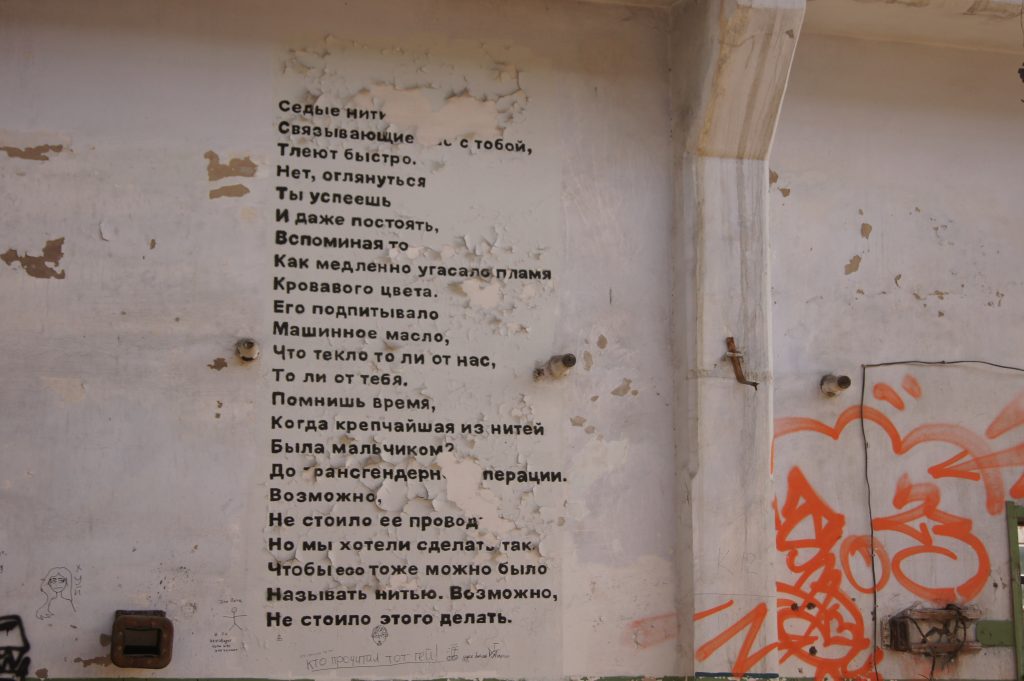 Седые нити
Связывающие с тобой,
Тлеют быстро.
Нет, оглянуться
Ты успеешь
И даже постоять,
Вспоминая то
Как медленно угасало пламя
Кровавого цвета.
Его подпитывало
Машинное масло,
Что текло то ли от нас,
То ли от тебя.
Помнишь время,
Когда крепчайшая из нитей
Была мальчиком?
До трансгендерн перации.
Возможно,
Не стоило ее провод
Но мы хотели сделать так
Чтобы его тоже можно было
Называть нитью. Возможно,
Не стоило этого делать.
кто прочитал тот гей!